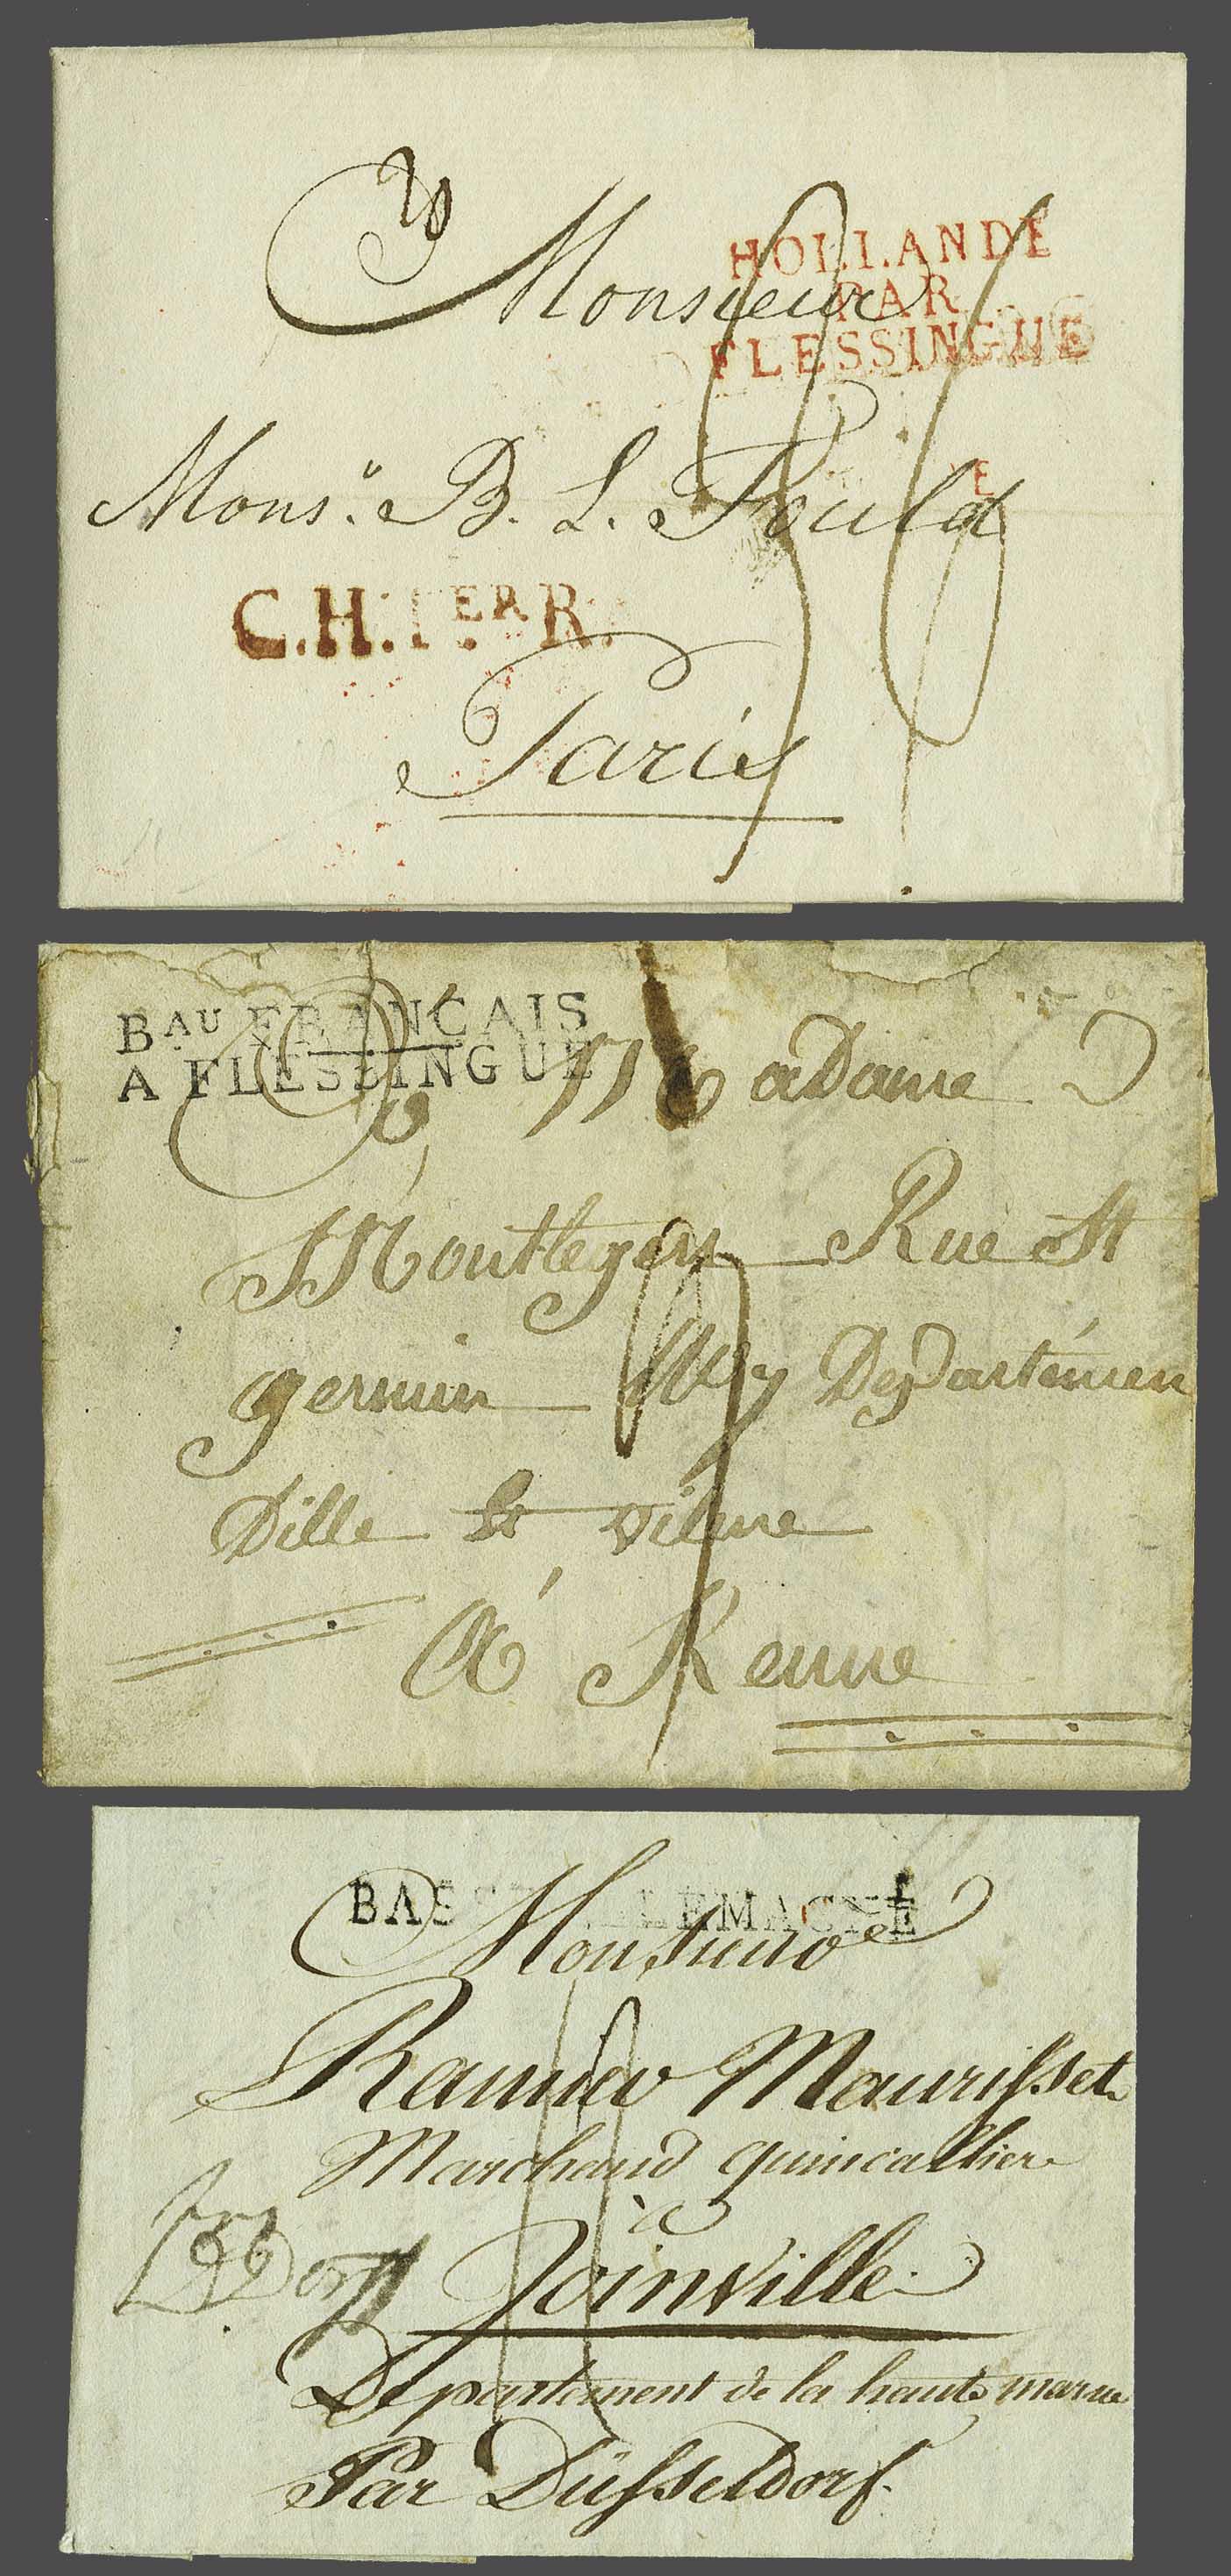 Monsieur
HOLLANDE
PAR
FLESSINGUE
Monsr. B. L. Fould
C.H.1ER.R.
Paris
BAU FRANÇAIS
A FLESSINGUE
Madame
Rue St
germin Departémen
Dille et vilene
A Renne
BASSE ALLEMAGNE
Monsieur
Maurisset
Marchand quincallier
a
Joinville
Département de la haute marne
Par Düsseldorf.